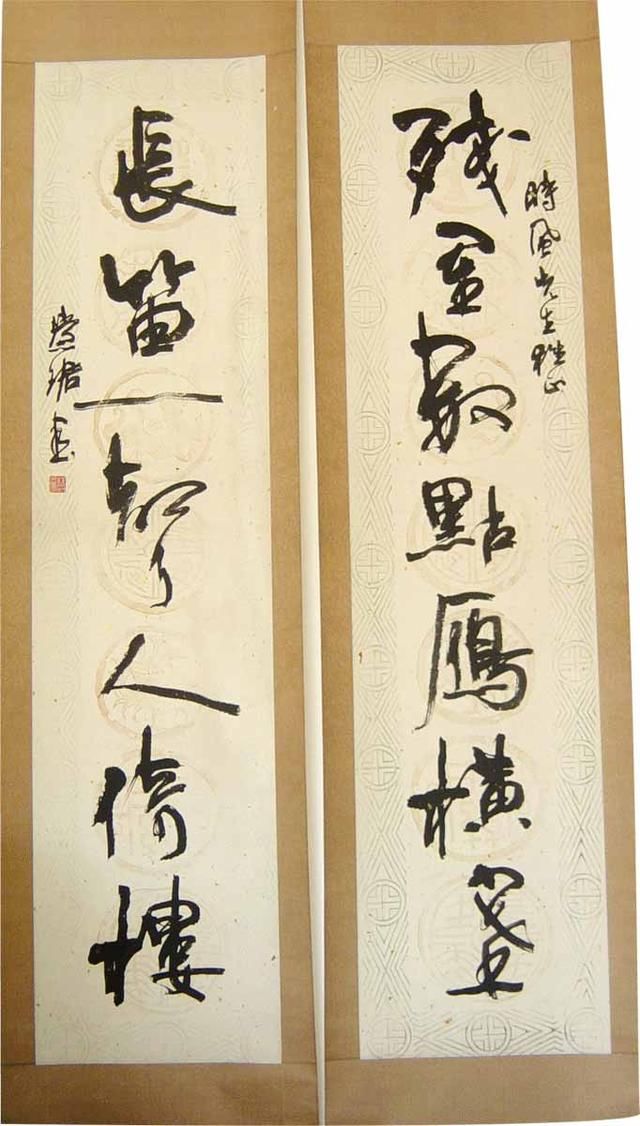 時風先生雅正
殘星數點鴈橫塞
長笛一聲人倚樓
慧珺書